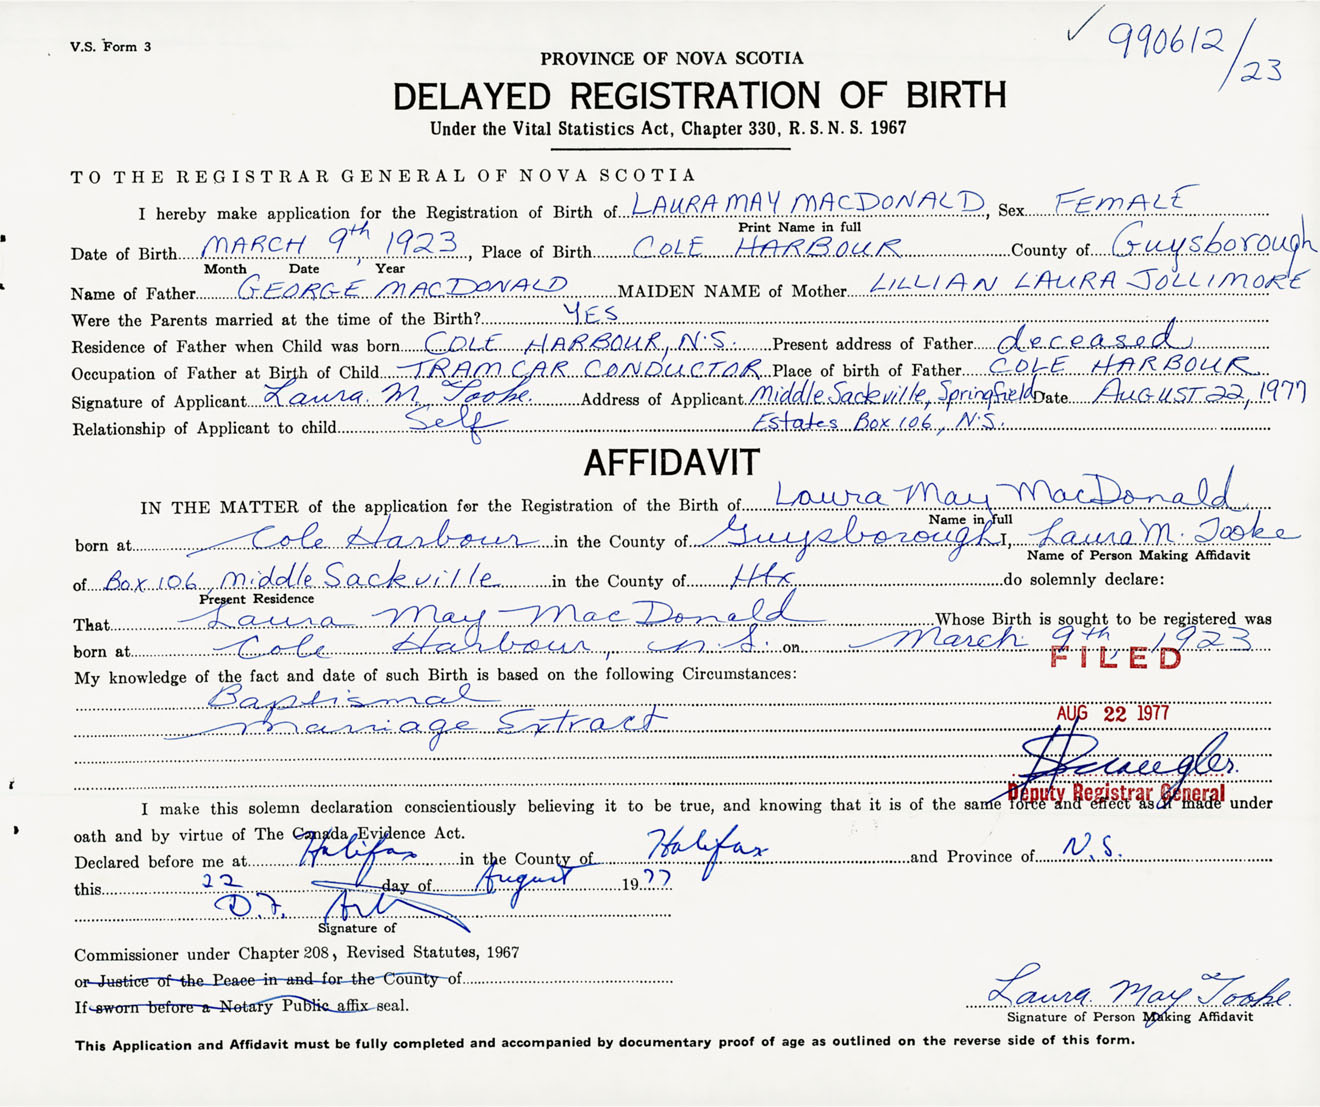 V.S. Form 3
990612/23
PROVINCE OF NOVA SCOTIA
DELAYED REGISTRATION OF BIRTH
Under the Vital Statistics Act, Chapter 330, R.S.N.S. 1967
TO THE REGISTRAR GENERAL OF NOVA SCOTIA
I hereby make application for the Registration of Birth of LAURA MAY MACDONALD, Sex FEMALE
Print Name in full
Date of Birth MARCH 9th, 1923, Place of Birth COLE HARBOUR County of Guysborough
Month Date Year
Name of Father GEORGE MACDONALD MAIDEN NAME of Mother LILLIAN LAURA JOLLIMORE
Were the Parents married at the time of the Birth? YES
Residence of Father when Child was born COLE HARBOUR, N.S. Present address of Father deceased
Occupation of Father at Birth of Child TRAM CAR CONDUCTOR Place of birth of Father COLE HARBOUR
Signature of Applicant Laura M. Tooke Address of Applicant Middle Sackville, Springfield Date AUGUST 22, 1977
Relationship of Applicant to child Self Estates Box 106, N.S.
AFFIDAVIT
IN THE MATTER of the application for the Registration of the Birth of Laura May MacDonald
Name in full
born at Cole Harbour in the County of Guysborough I, Laura M. Tooke
Name of Person Making Affidavit
of Box 106, Middle Sackville in the County of Hfx do solemnly declare:
Present Residence
That Laura May MacDonald Whose Birth is sought to be registered was
born at Cole Harbour, N.S. on March 9th, 1923
FILED
My knowledge of the fact and date of such Birth is based on the following Circumstances:
Baptismal
Marriage Extract
AUG 22 1977
Deputy Registrar General
I make this solemn declaration conscientiously believing it to be true, and knowing that it is of the same force and effect as if made under
oath and by virtue of The Canada Evidence Act.
Declared before me at Halifax in the County of Halifax and Province of N.S.
this 22 day of August 1977
D.F.
Signature of
Commissioner under Chapter 208, Revised Statutes, 1967
or Justice of the Peace in and for the County of
If sworn before a Notary Public affix seal.
Laura May Tooke
Signature of Person Making Affidavit
This Application and Affidavit must be fully completed and accompanied by documentary proof of age as outlined on the reverse side of this form.